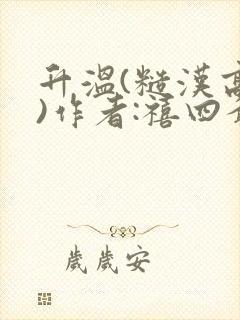 升温(糙汉高
)作者:禧四
歲歲安